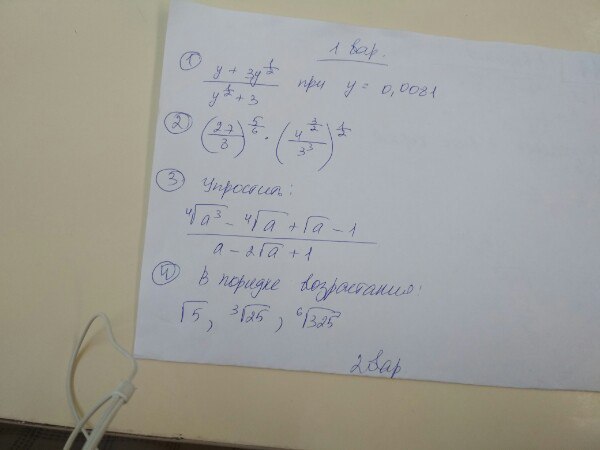 1 вар.
① (y + 3y^(1/2)) / (y^(1/2) + 3) при y = 0,0081
② (27/3)^(5/6) · (4^(3/2)/3^3)^(1/2)
③ Упростить:
(⁴√a³ - ⁴√a + √a - 1) / (a - 2√a + 1)
④ В порядке возрастания:
√5, ³√25, ⁶√325
2 вар